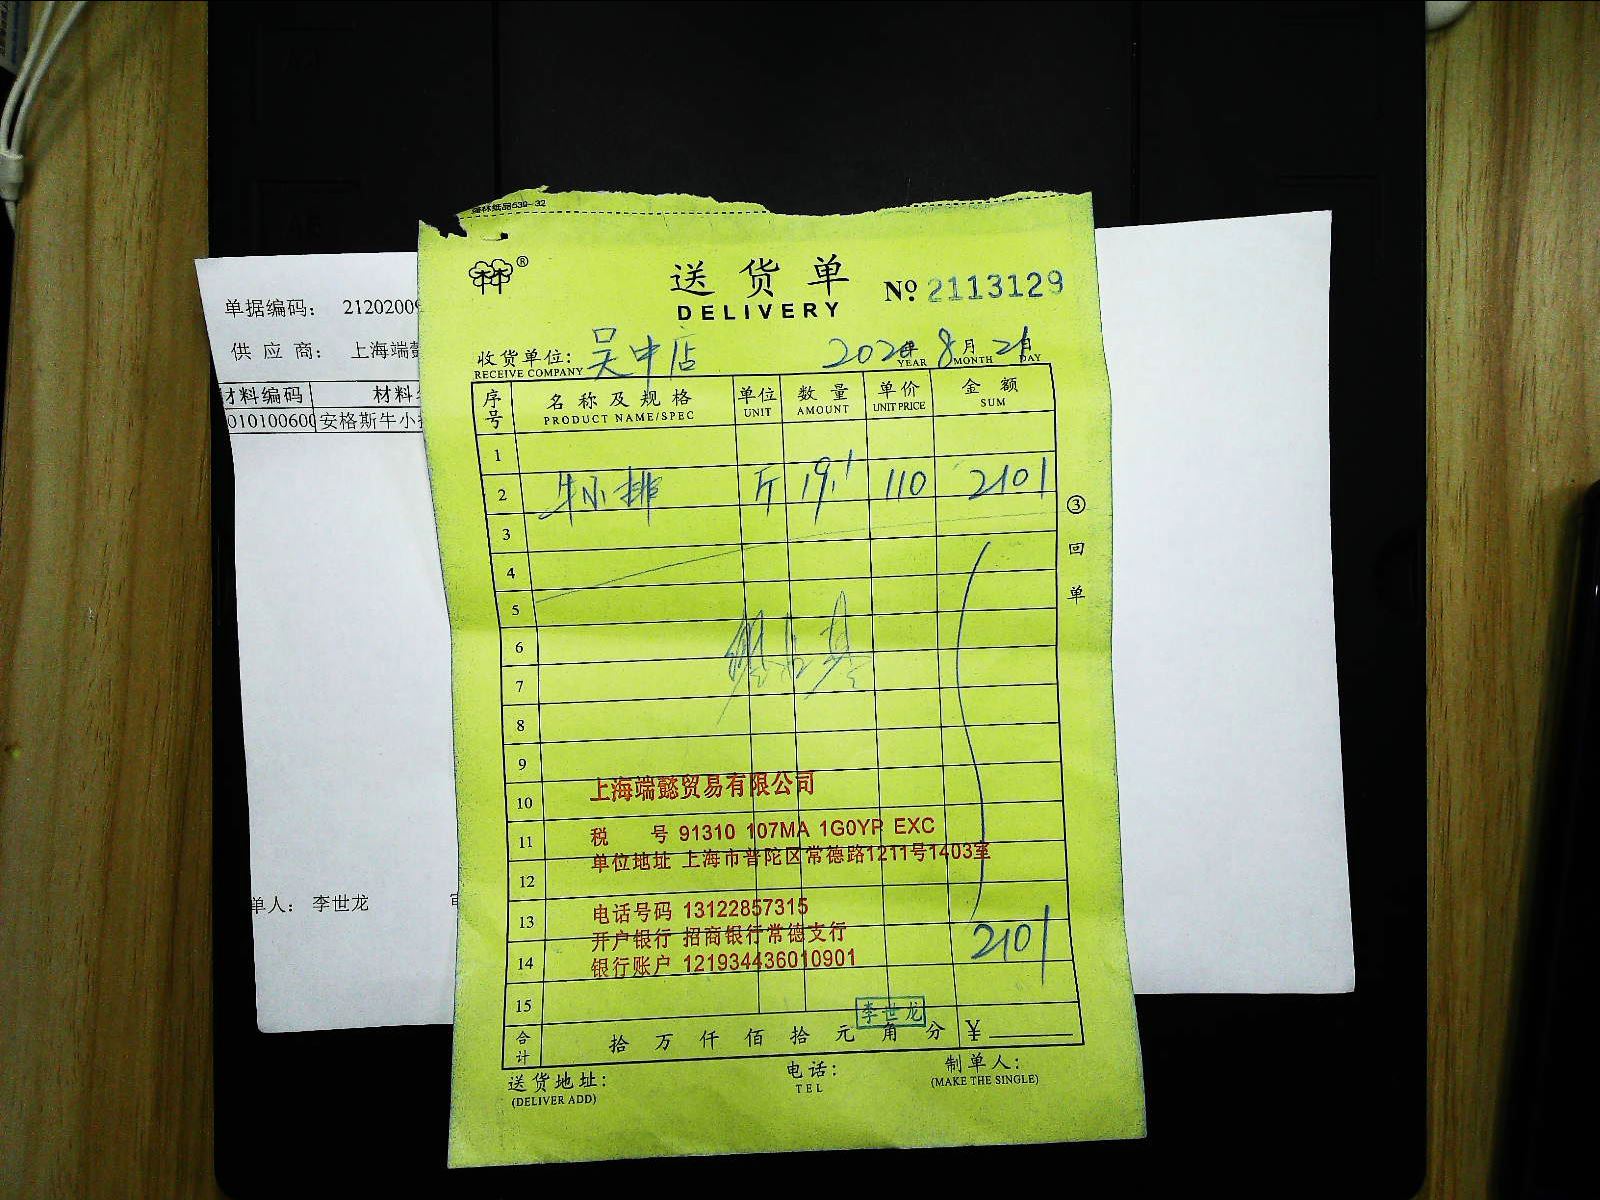 森林纸品639-32
送货单
DELIVERY
№ 2113129
收货单位: 吴中店 2020年 8月 21日
RECEIVE COMPANY YEAR MONTH DAY
序号 名称及规格 单位 数量 单价 金额
PRODUCT NAME/SPEC UNIT AMOUNT UNIT PRICE SUM
1
2 牛小排 斤 19.1 110 2101
3
4
5
6
7
8
9
10
11
12
13
14 2101
15
上海端懿贸易有限公司
税 号 91310 107MA 1G0YP EXC
单位地址 上海市普陀区常德路1211号1403室
电话号码 13122857315
开户银行 招商银行常德支行
银行账户 121934436010901
李世龙
合计 拾 万 仟 佰 拾 元 角 分 ¥
送货地址: 电话: 制单人:
(DELIVER ADD) TEL (MAKE THE SINGLE)
③回单
单据编码: 21202009
供应商: 上海端懿
材料编码 材料
01010060 安格斯牛小排
单人: 李世龙